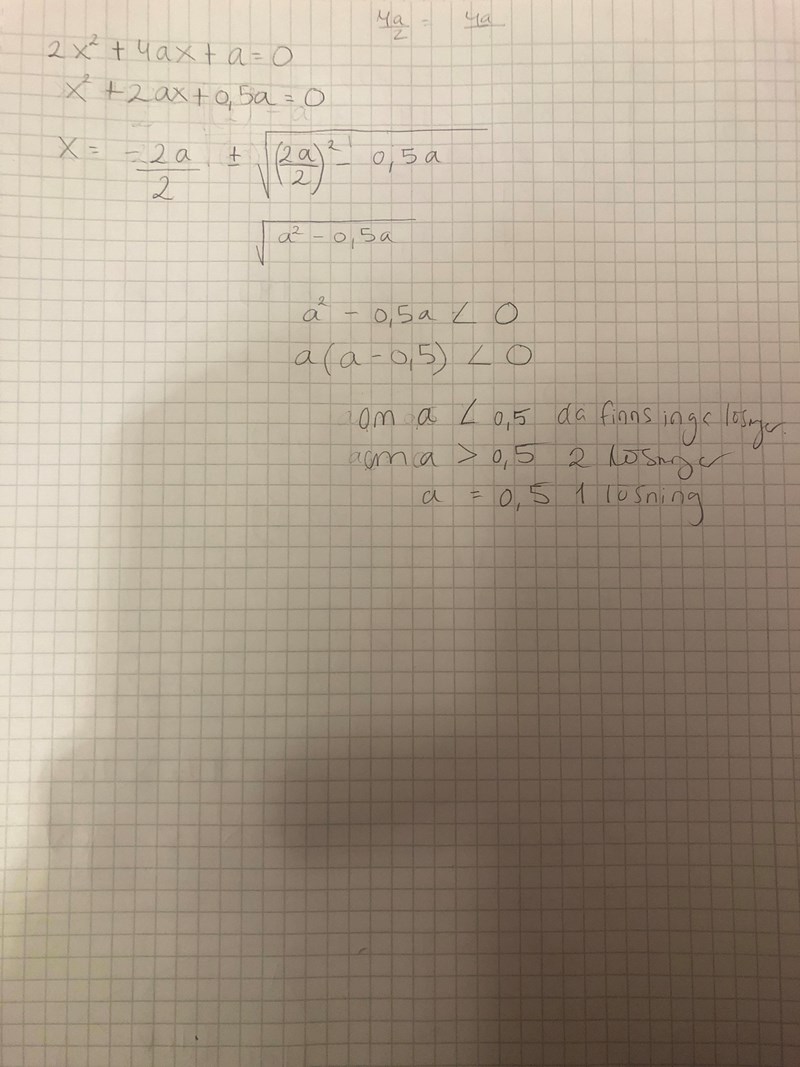 4a/2 = 4a
2x² + 4ax + a = 0
x² + 2ax + 0,5a = 0
x = -2a/2 ± √((2a/2)² - 0,5a)
√(a² - 0,5a)
a² - 0,5a < 0
a(a - 0,5) < 0
om a < 0,5 da finns inga
om a > 0,5 2
a = 0,5 1 losning